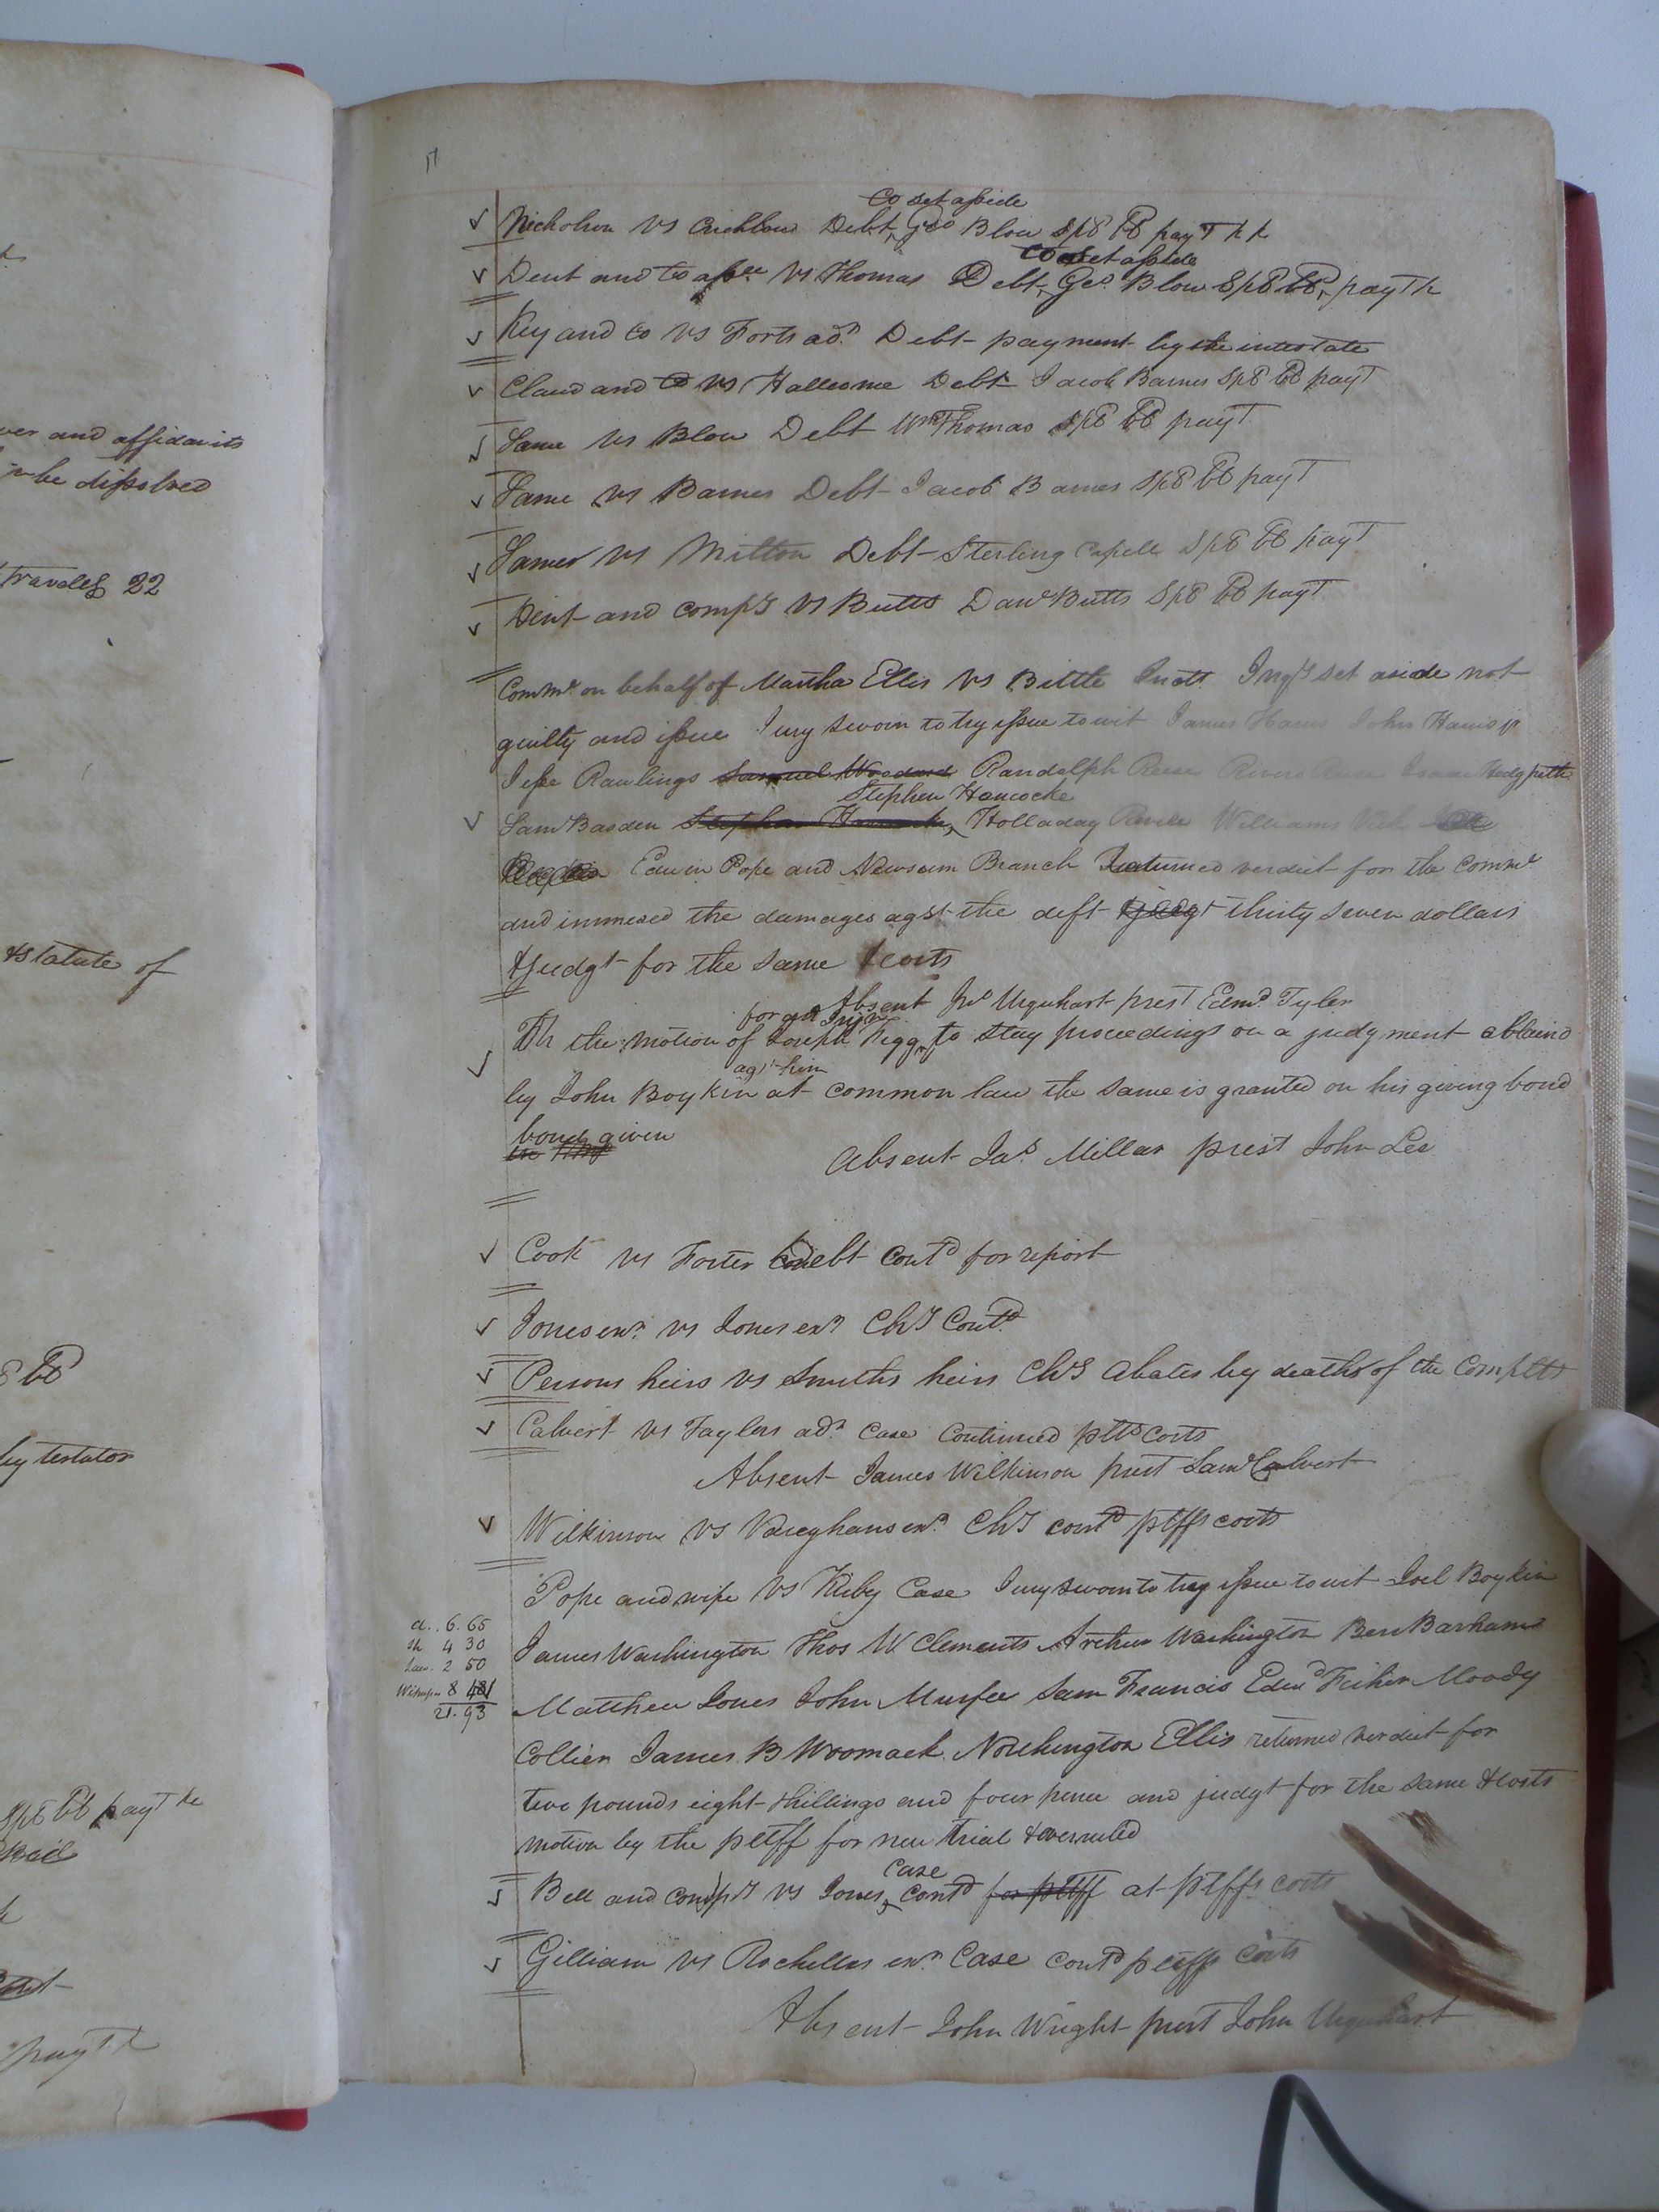 ver and affidavits
be dissolved
travels 22
statute of
by testator
spb bb payt
Bail
payt
17
Co set aside
Nicholson vs Crichlow Debt Geo Blow spb bb payt
Co set aside
Dent and Co assee vs Thomas Debt Geo. Blow spb bb payt
Key and Co vs Forts adr. Debt payment by the intestate
Claud and Co vs Hallcome Debt Jacob Barnes spb bb payt
Same vs Blow Debt Wm Thomas spb bb payt
Same vs Barnes Debt Jacob Barnes spb bb payt
Same vs Mitton Debt Sterling Capell spb bb payt
Dent and Comps vs Butts Danl Butts spb bb payt
Commo. on behalf of Martha Ellis vs Bittle set aside not
guilty and issue Jury sworn to try issue to wit James Harris John Harris jr
Jesse Rawlings Samuel Woodard Randolph Reese Rivers Reese Isaac Hedgpeth
Stephen Hancocke
Saml Basden Stephen Hancocke Holladay Revell Williams Vick
Edwin Pope and Newsum Branch Returned verdict for the Commo
and immesed the damages agst the deft thirty seven dollars
& judgt for the same & costs
Absent Jno Urquhart prest Edmd. Tyler
for an Injn
On the motion of Joseph Pigg to stay proceedings on a judgment obtaind
agt him
by John Boykin at common law the same is granted on his giving bond
bond given
Absent Jas. Millar prest John Lee
Cook vs Foster debt Contd for report
Jones exr. vs Jones exr Chy Contd.
Persons heirs vs Smiths heirs Chy abates by deaths of the Complts
Calvert vs Taylors adr. Case Continued pltfs Costs
Absent James Wilkinson prest Saml Calvert
Wilkinson vs Vaughans exr. Chy contd pltffs costs
Pope and wife vs Kirby Case Jury sworn to try issue to wit Joel Boykin
Cl. . 6. 65
Sh 4 30
Law. 2 50
Witnesses 8 48
21. 93
James Washington Thos W Clements Arthur Washington Ben Barham
Matthew Jones John Murfee Sam Francis Edwd Fisher Moody
Collier James B Woomack Northington Ellis returned verdict for
two pounds eight shillings and four pence and judgt for the same & costs
motion by the pltff for new trial & overruled
Case
Bell and Comps vs Jones contd for pltff at pltffs costs
Gilliam vs Rochelles exr. Case contd pltffs Costs
Absent John Wright prest John Urquhart